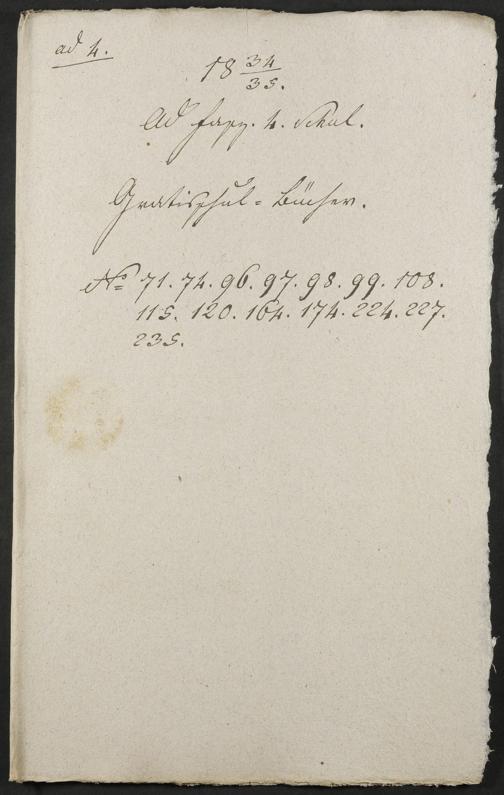 ad 4.
18 34/35.
Ad Fasz. 4. Schul.
Gratisschul-Bücher.
No 71. 74. 96. 97. 98. 99. 108.
115. 120. 164. 174. 224. 227.
235.